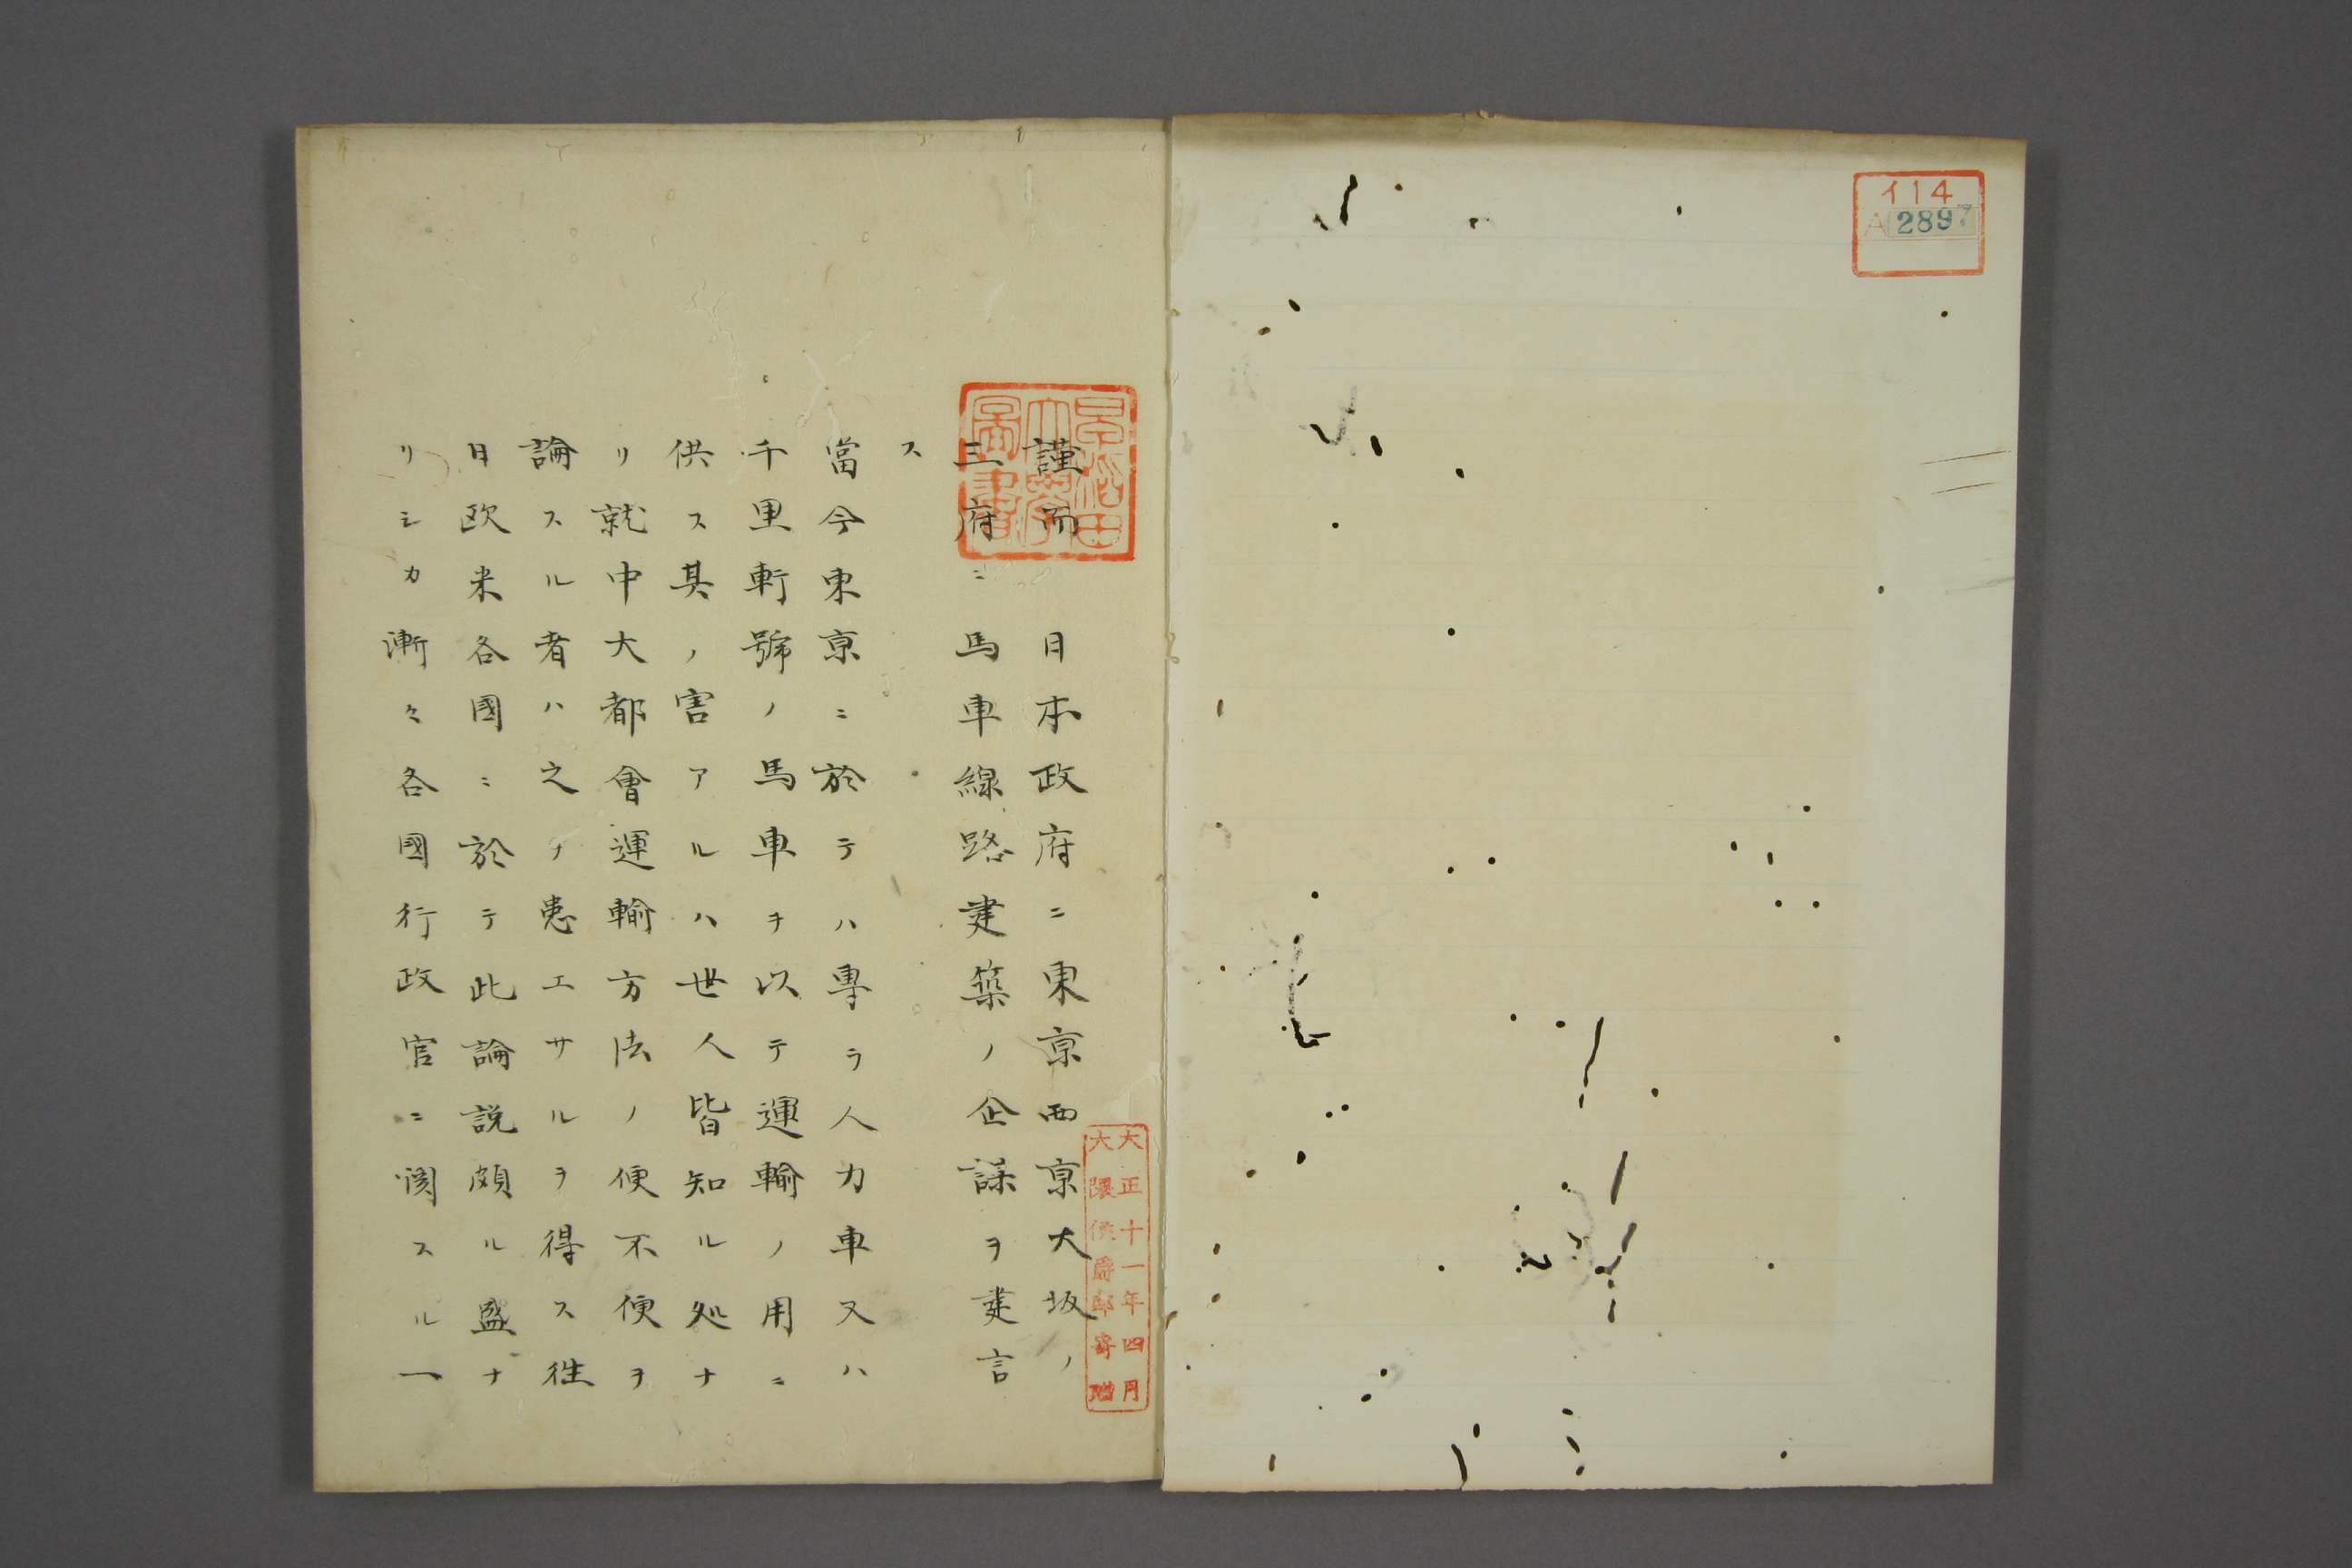 イ14
A 2897
早稲田大學圖書
謹而　日本政府ニ東京西京大坂ノ
三府ニ馬車線路建築ノ企謀ヲ建言
ス
當今東京ニ於テハ專ラ人力車又ハ
千里軒號ノ馬車ヲ以テ運輸ノ用ニ
供ス其ノ害アルハ世人皆知ル処ナ
リ就中大都會運輸方法ノ便不便ヲ
論スル者ハ之ヲ患エサルヲ得ス徃
日欧米各國ニ於テ此論説頗ル盛ナ
リシカ漸々各國行政官ニ関スル一
大正十一年四月
大隈侯爵邸寄贈